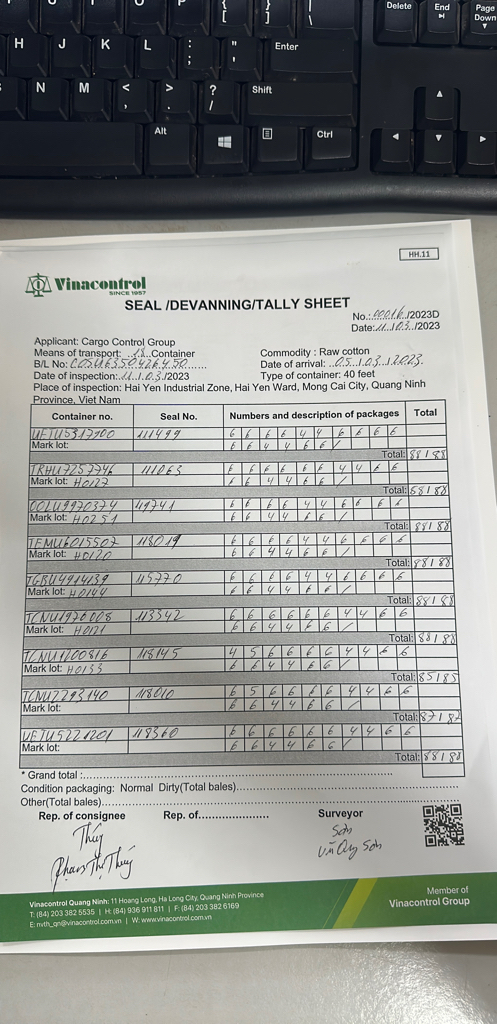 P
{
[
}
]
|
\
Delete
End
Page
Down
H
J
K
L
:
;
"
'
Enter
N
M
<
,
>
.
?
/
Shift
Alt
Ctrl
HH.11
Vinacontrol
SINCE 1957
SEAL /DEVANNING/TALLY SHEET
No.: 00016/2023D
Date: 11/03/2023
Applicant: Cargo Control Group
Means of transport: 18 Container
Commodity : Raw cotton
B/L No: COSU6350426450
Date of arrival: 05/03/2023
Date of inspection: 11/03/2023
Type of container: 40 feet
Place of inspection: Hai Yen Industrial Zone, Hai Yen Ward, Mong Cai City, Quang Ninh
Province, Viet Nam
Container no. Seal No. Numbers and description of packages Total
UETU5317100 111499 6 6 6 6 4 4 6 6 6 6
Mark lot: 6 6 4 4 6 6 /
Total: 88 88
TRHU7257746 111063 6 6 6 6 6 6 4 4 6 6
Mark lot: H0127 6 6 4 4 6 6 /
Total: 88 88
49741 6 6 6 6 4 4 6 6 6 6
Mark lot: H0251 6 6 4 4 6 6 /
Total: 88 88
TEMU6015507 118019 6 6 6 6 4 4 6 6 6 6
Mark lot: H0120 6 6 4 4 6 6 /
Total: 88 88
TGBU4914139 115770 6 6 6 6 4 4 6 6 6 6
Mark lot: H0144 6 6 4 4 6 6 /
Total: 88 88
TCNU1976008 113342 6 6 6 6 6 6 4 4 6 6
Mark lot: H0121 6 6 4 4 6 6 /
Total: 88 88
TCNU1200816 118145 4 5 6 6 6 6 4 4 6 6
Mark lot: H0133 6 6 4 4 6 6 /
Total: 85 85
TCNU2293140 118010 6 5 6 6 6 6 4 4 6 6
Mark lot: 6 6 4 4 6 6 /
Total: 87 87
UETU5221201 118360 6 6 6 6 6 6 4 4 6 6
Mark lot: 6 6 4 4 6 6 /
Total: 88 88
* Grand total :
Condition packaging: Normal Dirty(Total bales)
Other(Total bales)
Rep. of consignee Rep. of Surveyor
Thúy Sơn
Phạm Thị Thúy Vũ Quý Sơn
Vinacontrol Quang Ninh: 11 Hoang Long, Ha Long City, Quang Ninh Province
T: (84) 203 382 5535 | H: (84) 936 911 811 | F: (84) 203 382 6169
E: nvth_qn@vinacontrol.com.vn | W: www.vinacontrol.com.vn
Member of
Vinacontrol Group